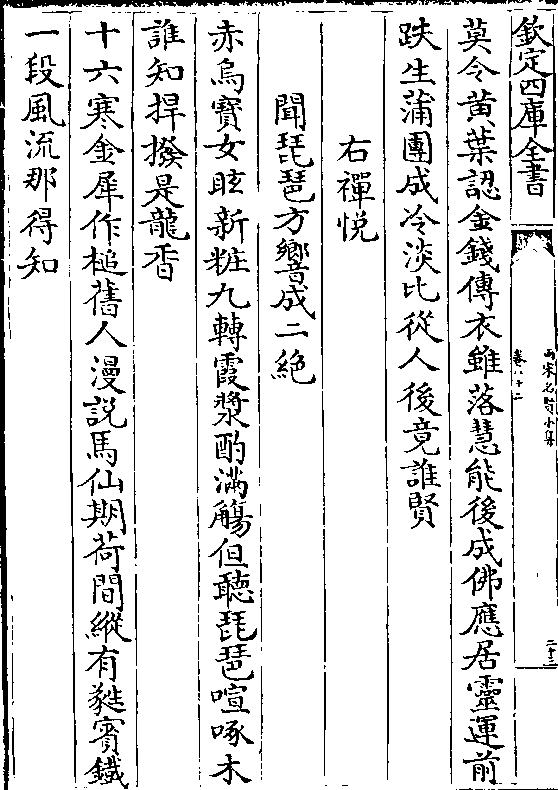 欽定四庫全書
兩宋名賢小集
卷八十二
二十三
莫令黄葉認金錢傳衣雖落慧能後成佛應居靈運前
趺生蒲團成冷淡比從人後竟誰賢
右禪悦
聞琵琶方響成二絶
赤烏寳女眩新粧九轉霞漿酌滿觴但聽琵琶喧啄木
誰知捍撥是龍香
十六寒金犀作槌舊人漫説馬仙期荷間縱有蕤賓鐵
一段風流那得知